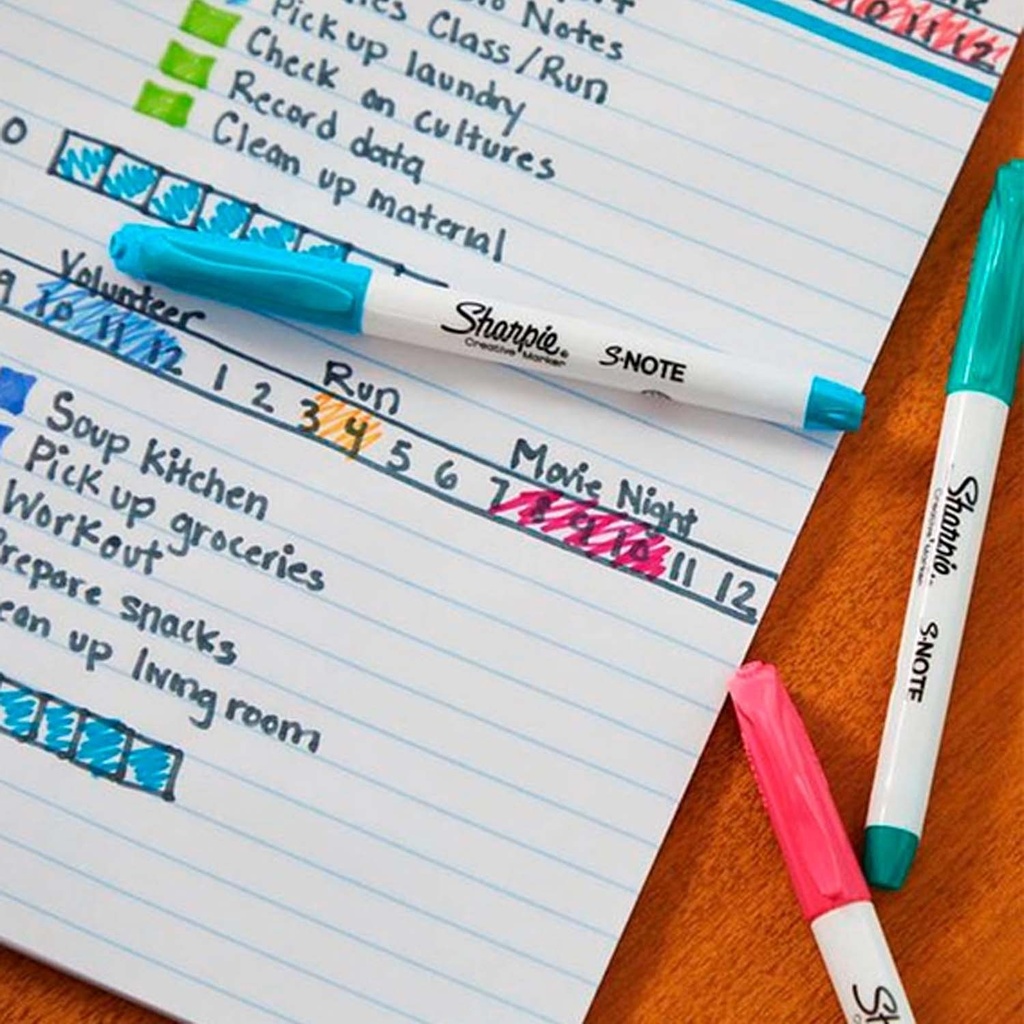 Notes
Class/Run
Pick up laundry
Check on cultures
Record data
Clean up material
10 11 12
0
Volunteer
Run
Movie Night
9 10 11 12 1 2 3 4 5 6 7 8 9 10 11 12
Soup Kitchen
Pick up groceries
Workout
Prepare snacks
ean up living room
Sharpie
Creative Marker
S·NOTE
Sharpie
Creative Marker
S·NOTE
Sh